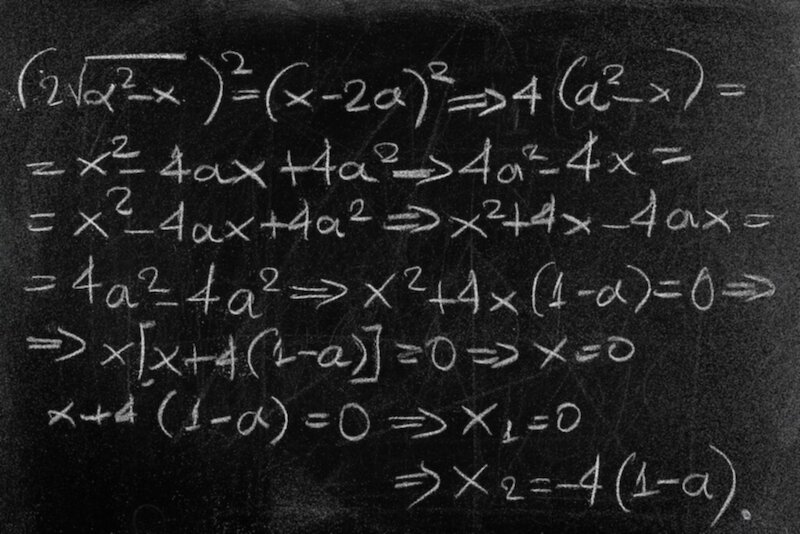 (2√(a²-x))² = (x-2a)² ⇒ 4(a²-x) =
= x² - 4ax + 4a² ⇒ 4a² - 4x =
= x² - 4ax + 4a² ⇒ x² + 4x - 4ax =
= 4a² - 4a² ⇒ x² + 4x(1-a) = 0 ⇒
⇒ x[x+4(1-a)] = 0 ⇒ x = 0
x+4(1-a) = 0 ⇒ x₁ = 0
⇒ x₂ = -4(1-a).